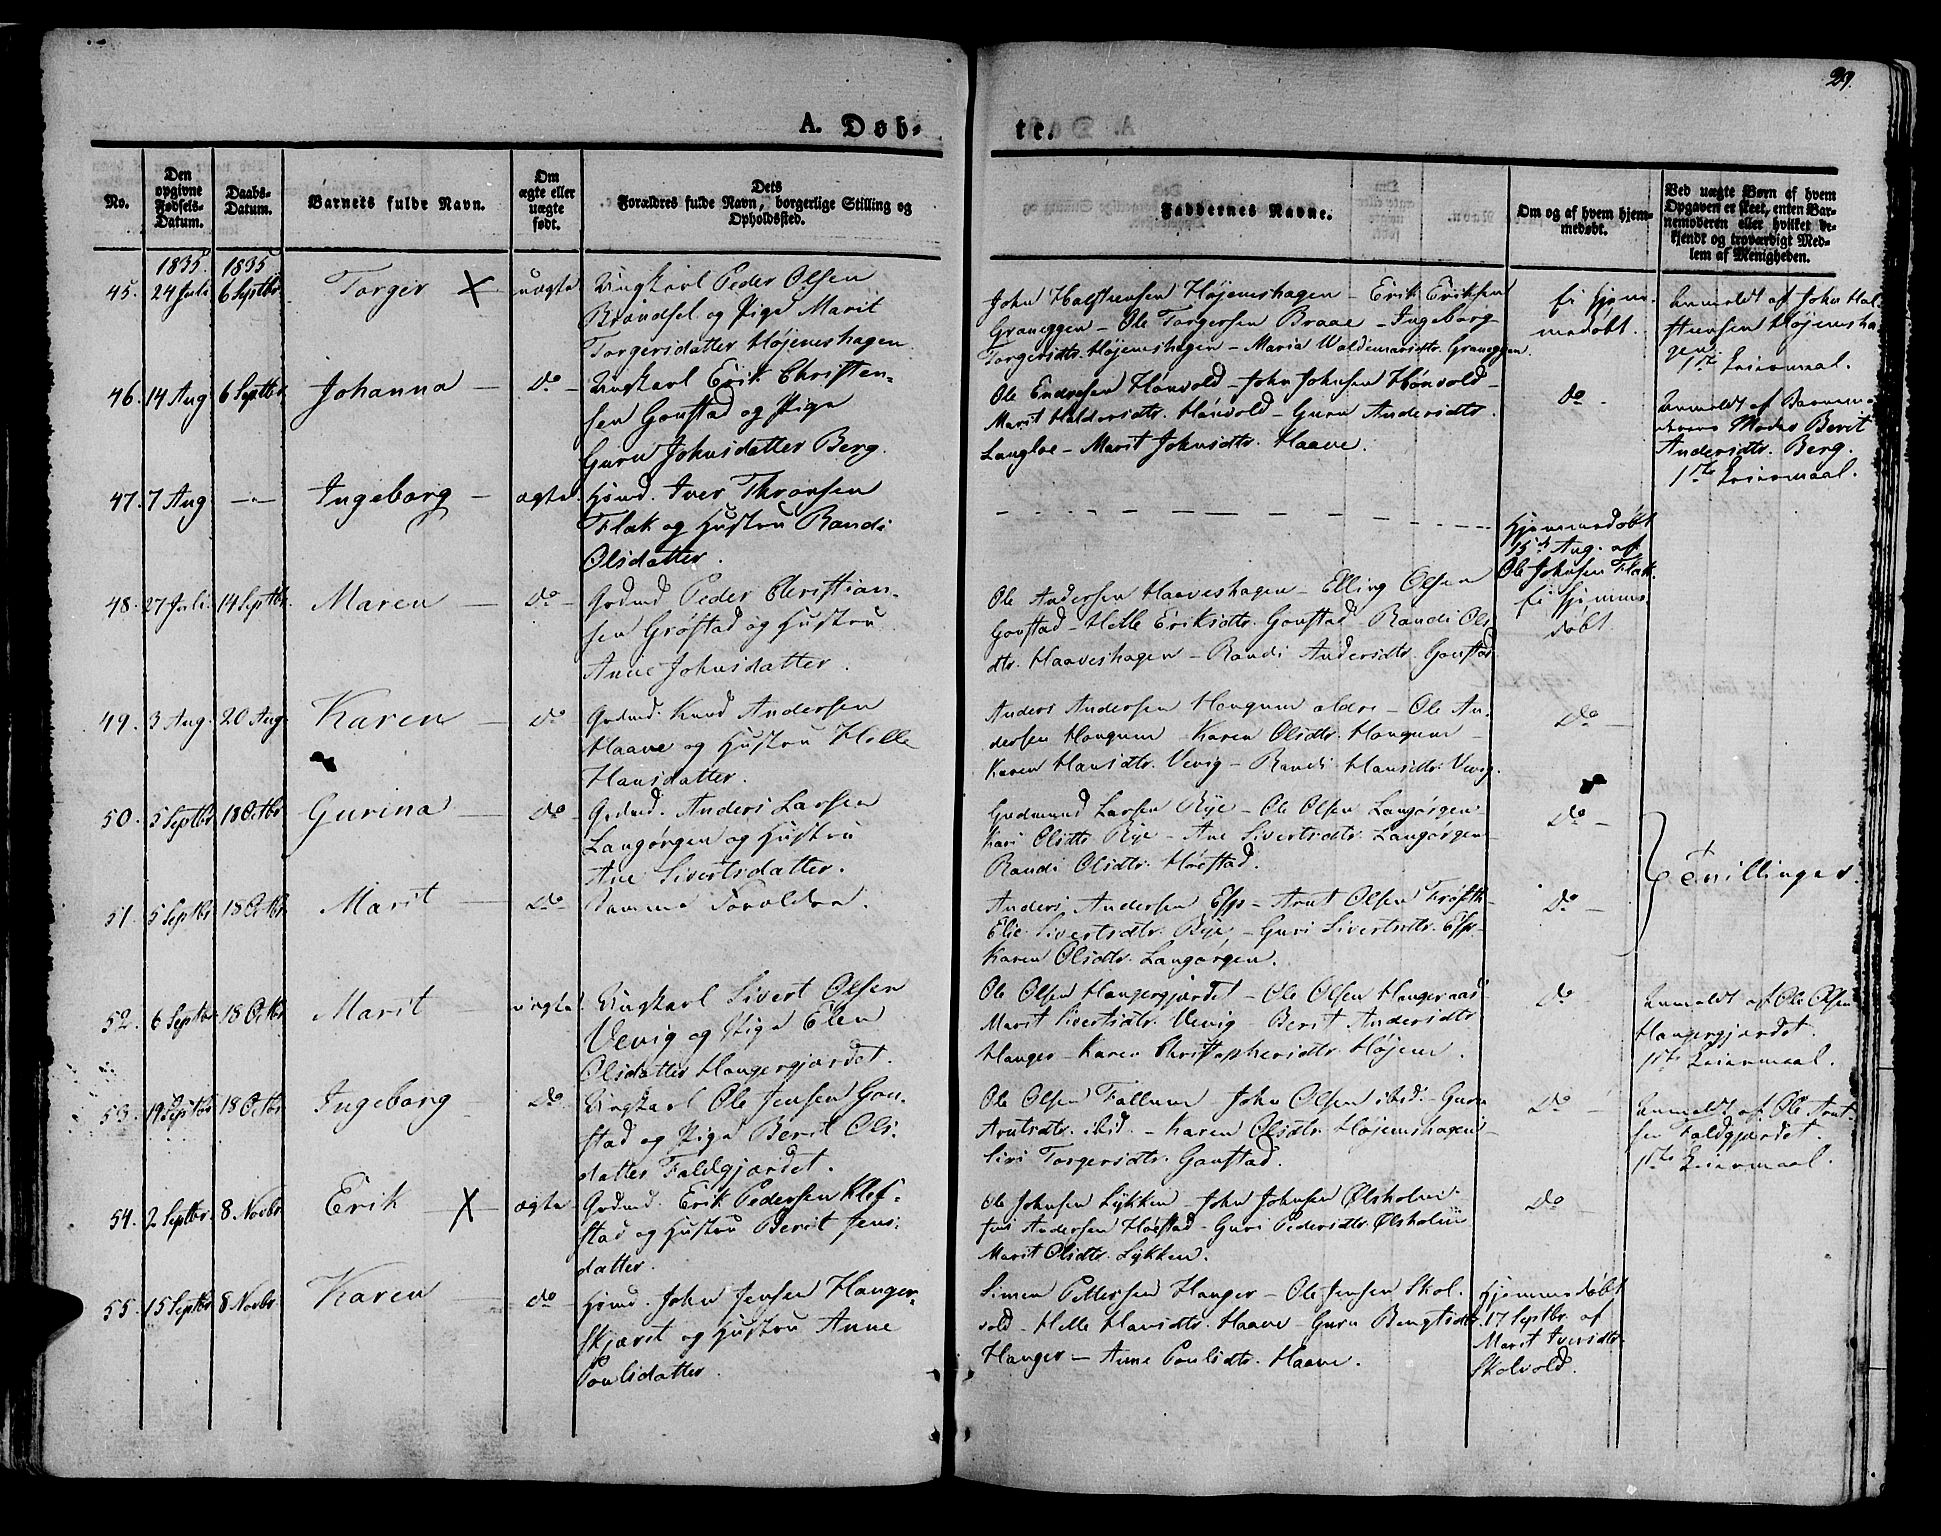 29.
A. Døb-
te.
No.
Den opgivne Fødsels-Datum.
Daabs-Datum.
Barnets fulde Navn.
Om ægte eller uægte født.
Dets Forældres fulde Navn, borgerlige Stilling og Opholdssted.
Faddernes Navne.
Om og af hvem hjemmedøbt.
Ved uægte Børn af hvem Opgaven er skeet, enten Barnemoderen eller hvilket bekjendt og troværdigt Medlem af Menigheden.
1835. 1835
45. 24 Juli 6 Septbr. Torger X uægte Ungkarl Peder Olsen
Brandsel og Pige Marit
Torgersdatter Højemshagen
John Halstensen Højemshagen - Erik Eriksen
Graneggen - Ole Torgersen Braae - Ingeborg
Torgersdtr. Højemshagen - Maria Waldemarsdtr. Graneggen.
Ei hjem-
medøbt.
Anmeldt af John Hal-
stensen Højemsha-
gen
1ste Leiermaal.
46. 14 Aug 6 Septbr. Johanna - Do - Ungkarl Erik Christen-
sen Goustad og Pige
Guru Johnsdatter Berg.
Ole Endresen Hønvold - John Johnsen Hønvold -
Marit Haldorsdtr. Hønvold - Guru Andersdtr.
Langloe - Marit Johnsdtr. Haave.
Do -
Anmeldt af Barnemo-
derens Moder Berit
Andersdtr. Berg.
1ste Leiermaal.
47. 7 Aug -"- Ingeborg - ægte. Hsmd. Iver Thronsen
Flak og Hustru Randi
Olsdatter.
Hjemmedøbt
15d Aug. af
Ole Johnsen Flak.
48. 27 Juli. 14 Septbr. Maren - Do - Grdmd Peder Christian-
sen Grøstad og Hustru
Anne Johnsdatter.
Ole Andersen Haaveshagen - Elling Olsen
Goustad - Helle Eriksdtr. Goustad - Randi Ols
dtr. Haaveshagen - Randi Andersdtr. Goustad
Ei hjemme-
døbt
49. 3 Aug. 20 Aug. Karen - Do Grdmd. Knud Andersen
Haave og Hustru Helle
Hansdatter.
Anders Andersen Hougum ældre - Ole An-
dersen Hougum - Karen Olsdtr. Hougum -
Karen Hansdtr. Vevig - Randi Hansdtr. Vevig.
Do -
50. 5 Septbr 18 Octbr Gurina - Do - Grdmd. Anders Larsen
Langørgen og Hustru
Ane Sivertsdatter.
Gudmund Larsen Rye - Ole Olsen Langørgen -
Kari Olsdtr Rye - Ane Sivertsdtr. Langørgen
Randi Olsdtr. Høestad.
Do -
Tvillinger.
51. 5 Septbr 18 Octbr Marit - Do Samme Forældre.
Anders Andersen Esp - Arnt Olsen Frøseth -
Elie Sivertsdtr. Rye - Guri Sivertsdtr. Esp -
Karen Olsdtr. Langørgen.
Do -
52. 6 Septbr 18 Octbr Marit - uægte. Ungkarl Sivert Olsen
Vevig og Pige Elen
Olsdatter Hangergjærdet.
Ole Olsen Hangergjærdet - Ole Olsen Hangeraas
Marit Sivertsdtr. Vevig - Berit Andersdtr
Hanger - Karen Christophersdtr. Højem.
Do -
Anmeldt af Ole Olsen
Hangergjærdet
1ste Leiermaal.
53. 19 Septbr 18 Octbr Ingeborg - Do. Ungkarl Ole Jensen Gou-
stad og Pige Berit Ols-
datter Faldgjærdet.
Ole Olsen Fallum - John Olsen ibid. - Guru
Arntsdtr. ibid. - Karen Olsdtr. Højemshagen
Siri Torgersdtr. Goustad.
Do -
Anmeldt af Ole Arnt-
sen Faldgjærdet.
1ste Leiermaal.
54. 2 Septbr. 8 Novbr Erik - X - ægte Grdmd. Erik Pedersen Klef-
stad og Hustru Berit Jens-
datter.
Ole Johnsen Lykken - John Johnsen Ølsholm -
Jens Andersen Høestad - Guri Pedersdtr. Ølsholm
Marit Olsdtr. Lykken.
Do -
55. 15 Septbr 8 Novbr. Karen - Do - Hsmd. John Jensen Hanger-
skjæret og Hustru Anne
Poulsdatter.
Simen Pettersen Hanger - Ole Jensen Skol-
vold - Helle Hansdtr. Haave - Guru Bengtsdtr.
Hanger - Anne Poulsdtr. Haave.
Hjemmedøbt
17 Septbr. af
Marit Iversdtr.
Skolvold.